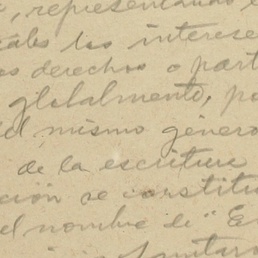 , representando e
iales los interese
es derechos o part
globalmente, po
del mismo género
de la escritura
ción se constitu
el nombre de "E